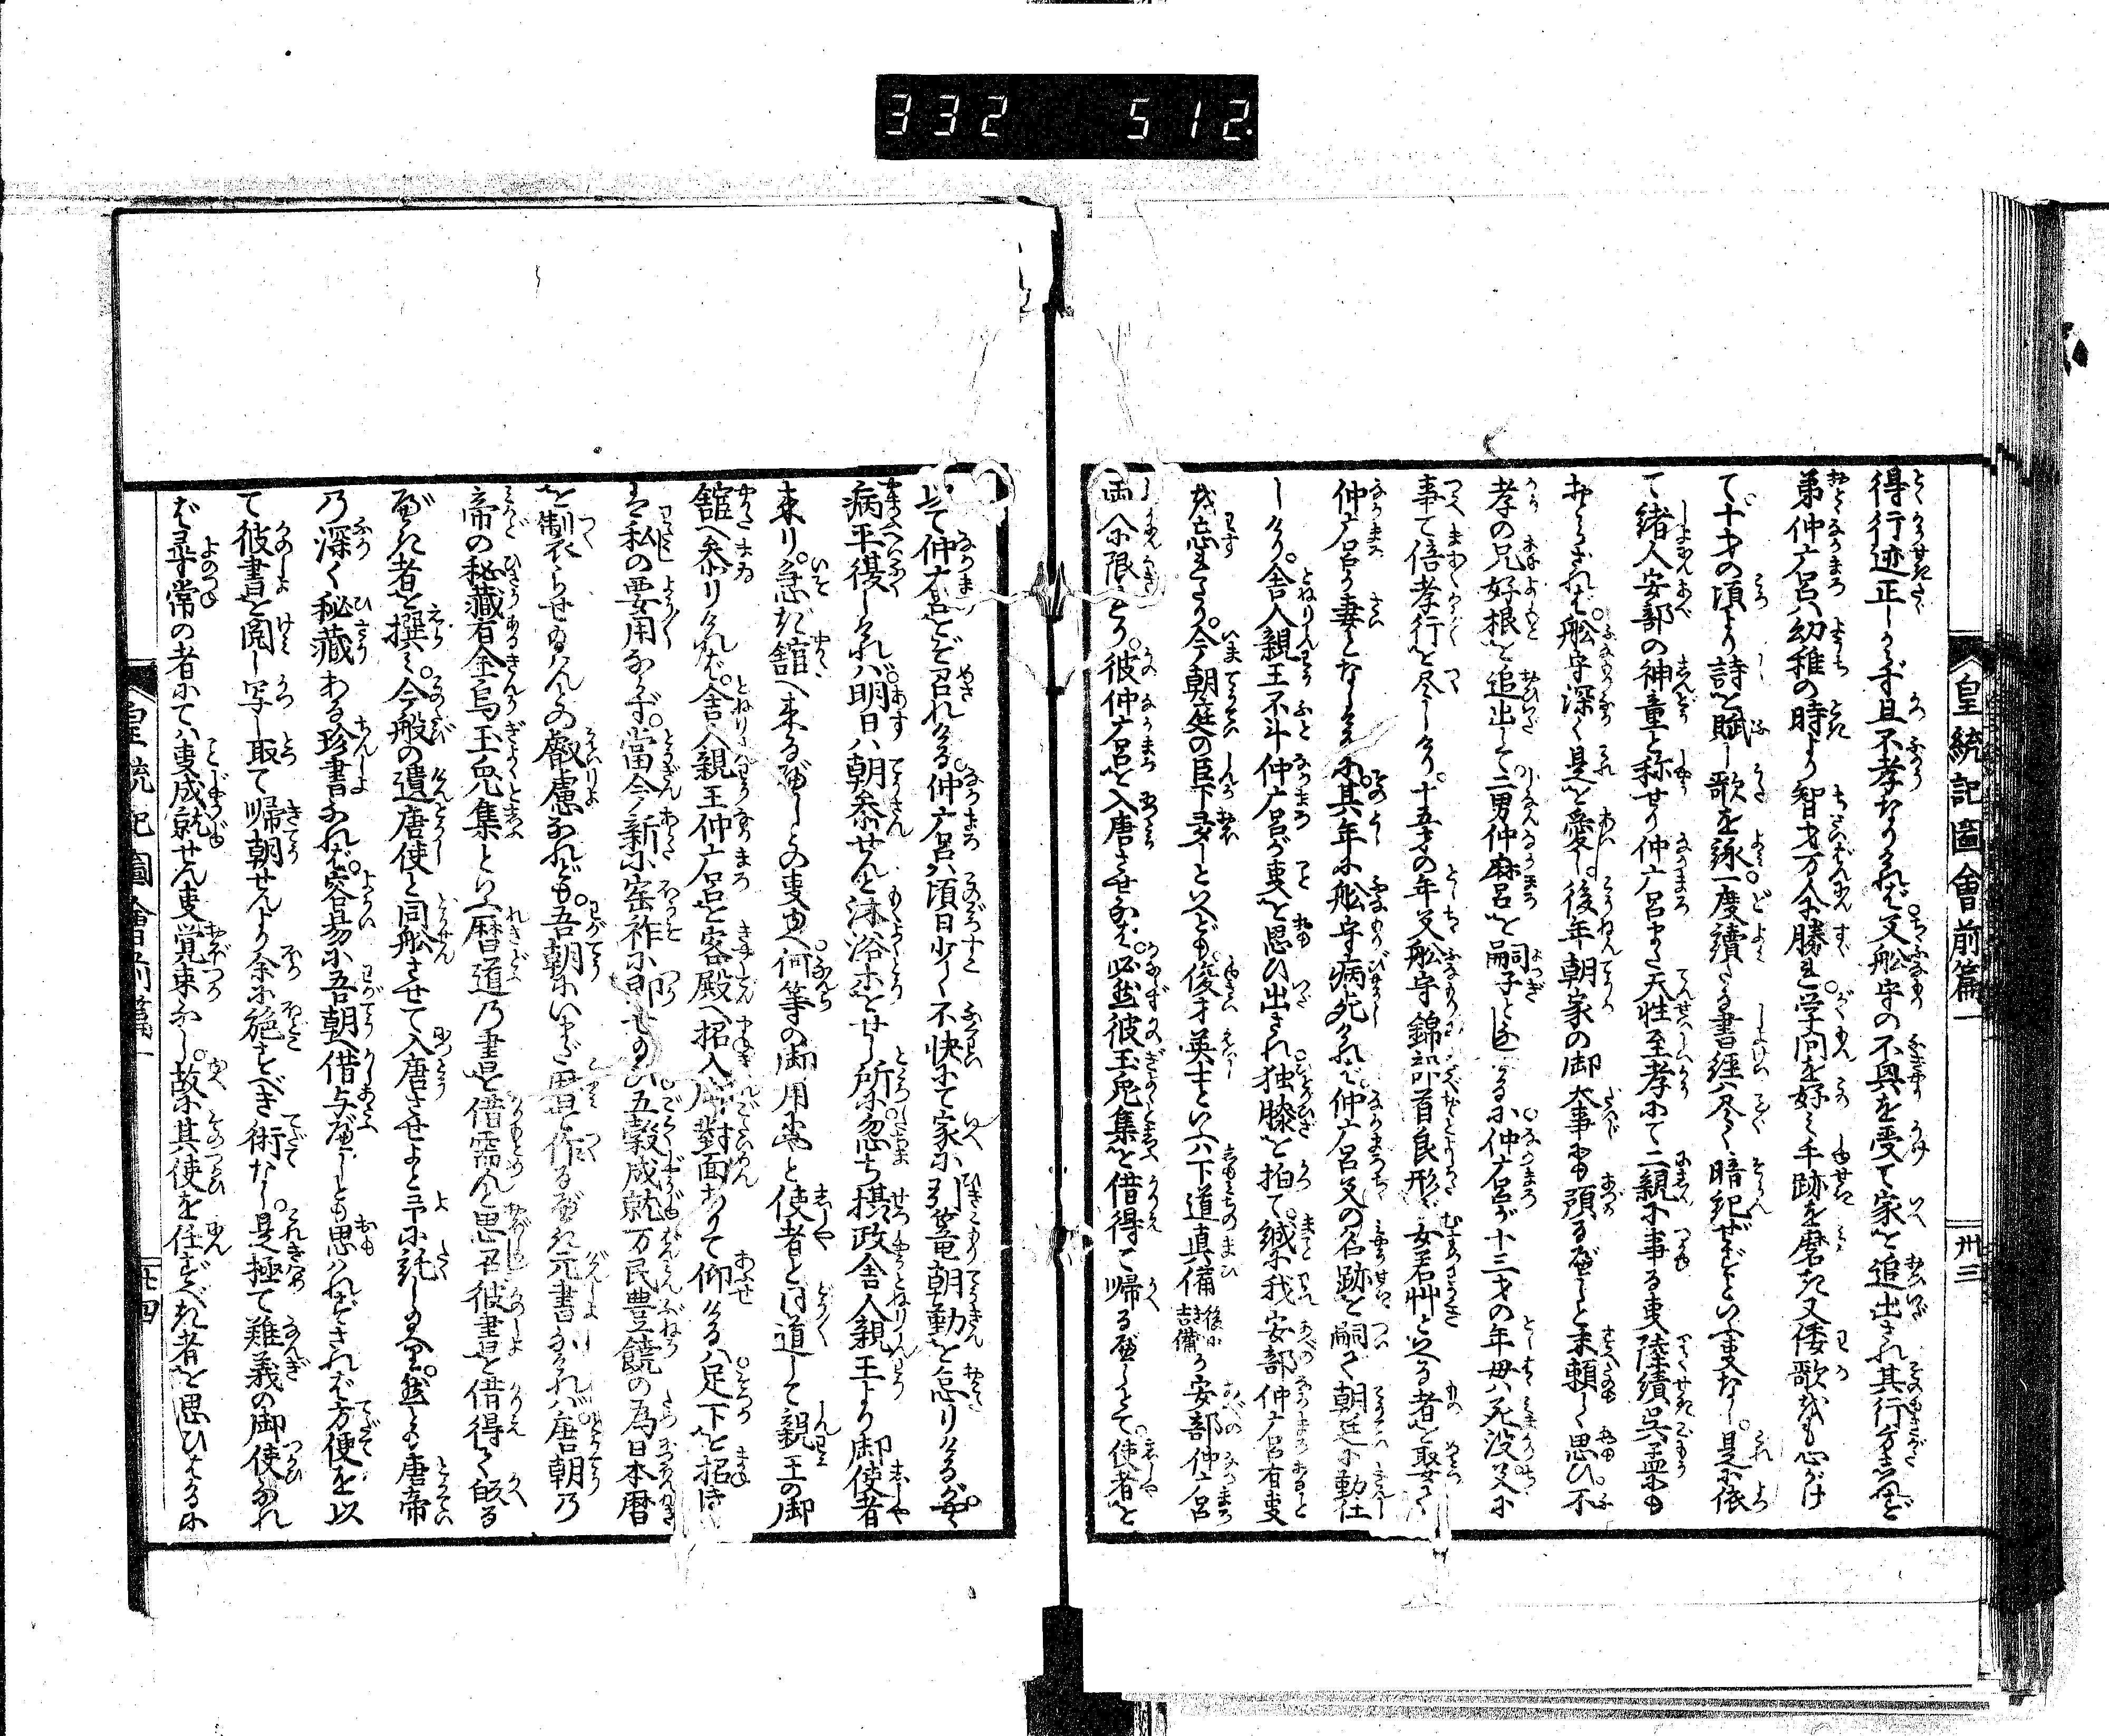 332 512.
皇統記圖會前篇一
卅三
得行迹正しからず且不孝なりければ父舩守の不興を受て家を追出され其行方しれず
弟仲麻呂ハ幼稚の時より智才万人に勝れ学問を好ミ手跡を磨き又倭歌をも心がけ
て十才の頃より詩を賦し歌を詠一度續たる書経ハ尽く暗記ぜずといふ事なし是に依
て緒人安部の神童と称せり仲麻呂また天性至孝にて二親に事る事陸績呉孟にも
おとらざれバ舩守深く是を愛し後年朝家の御大事にも預るべしと末頼しく思ひ不
孝の兄好根を追出して二男仲麻呂を嗣子とし遣しけるに仲麻呂が十三才の年母ハ死没父に
事て倍孝行を尽しけり十五才の年父舩守錦部首良形が女若艸といへる者を娶て
仲麻呂の妻となしけるに其年に舩守病死けれバ仲麻呂父の名跡を嗣て朝廷に勤仕
しけり舎人親王不斗仲麻呂が事を思ひ出され独膝を拍て誠に我安部仲麻呂有事
を忘れたり今朝庭の臣下多しといへども俊才英士といハ下道真備後に吉備安部仲麻呂
両人に限とり彼仲麻呂を入唐させなバ必然彼玉兎集を借得て帰るべしとて使者を
以て仲麻呂をぞ召れける仲麻呂ハ頃日少しく不快にて家に引篭朝勤を怠りけるが漸く
病平復しけれバ明日ハ朝参せんと沐浴をせし所に忽ち摂政舎人親王より御使者
来り急ぎ舘へ来るべしとの事也何等の御用にやと使者と同道して親王の御
舘へ参りければ舎人親王仲麻呂を客殿へ招入御對面ありて仰けるハ足下を招は
是私の要用ならず當今新に宝祚に即せ給ひ五穀成就万民豊饒の為日本暦
を製らせ給んの叡慮なれども吾朝にいまだ暦を作るべき元書なけれバ唐朝乃
帝の秘藏有金烏玉兎集といふ暦道乃書を借需んと思召彼書を借得て皈る
べき者を撰ミ今般の遣唐使と同舩させて入唐させよと予に託し給り然しより唐帝
乃深く秘藏ある珍書なれば容易に吾朝へ借与べしとも思ハれずされば方便を以
て彼書を閲し写し取て帰朝せんより余に施すべき術なし是極て難義の御使なれ
ば尋常の者にてハ事成就せん事覚束なし故に其使を任ずべき者を思ひはかるに
皇統記圖會前篇一
卅四